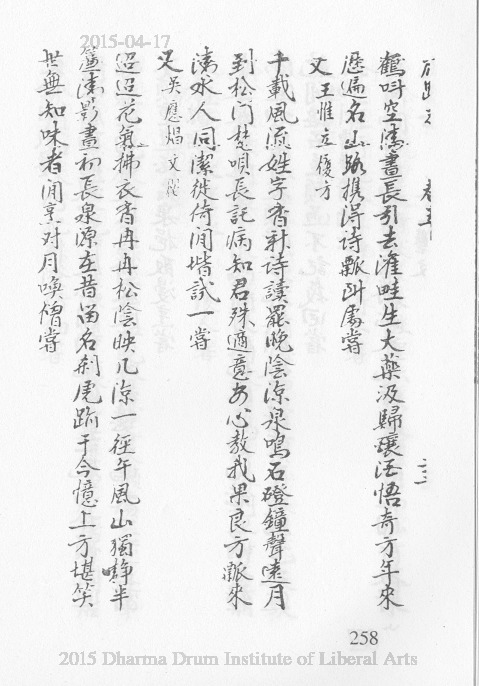 2015-04-17
虎跑志 卷五 三三
鶴呌空濤晝長引去滩畦生大藥汲歸釀活悟奇方年來
歷遍名山路携得詩瓢到處嘗
又王惟立復方
千載風流姓字香新詩讀罷晚陰涼泉鳴石磴鐘聲遠月
到松門梵唄長託病知君殊適意安心教我果良方瓢來
清水人同潔徙倚閒堦試一嘗
又吳應焻文從
迢迢花氣拂衣香冉冉松陰映几涼一徑午風山獨靜半
簾清影晝初長泉源在昔留名刹虎跡于今憶上方堪笑
世無知味者閒烹对月喚僧嘗
258
2015 Dharma Drum Institute of Liberal Arts